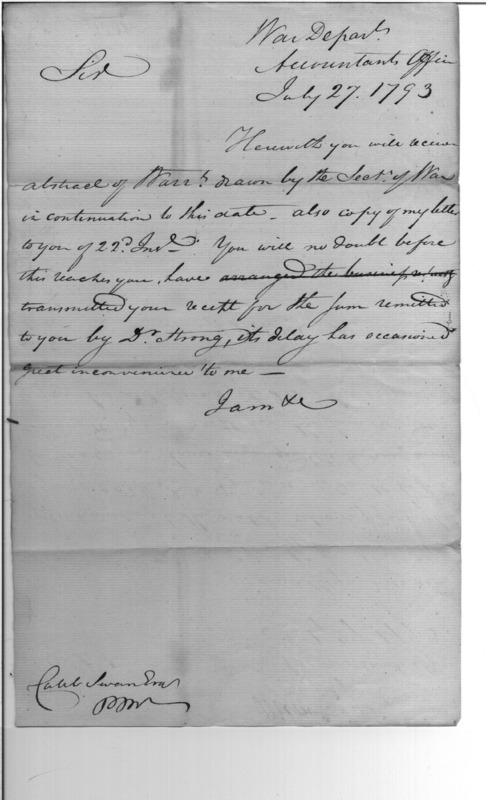 War Depart.
Accountants Office
July 27. 1793
Sir
Herewith you will receive
abstract of Warrts. drawn by the Secty. of War
in continuation to this date - also copy of my letter
to you of 22d. Inst. You will no doubt before
this reaches you, have arranged the business
transmitted your receipt for the sum remitted
to you by Dr. Strong, its delay has occasioned
great inconvenience to me -
I am &c
Caleb Swan Esqr